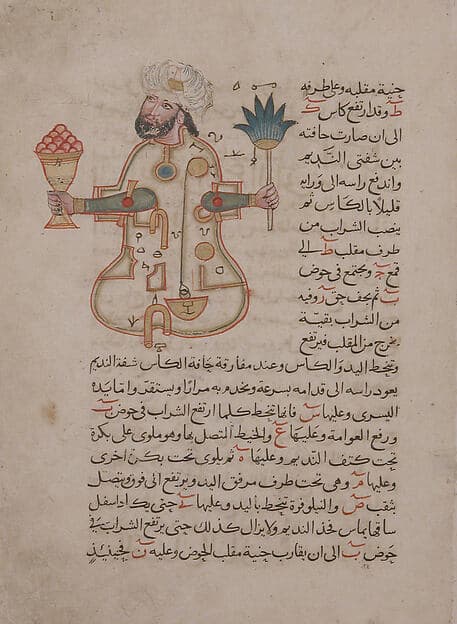 جنية مقلبه وعلى طرفه
ط وقد ارتفع كاس ك
الى ان صارت حافته
بين شفتي النديم
واندفع راسه الى ورايه
قليلا بالكاس ثم
ينصب الشراب من
طرف مقلب ط الى
قمع ج ويجتمع في حوض
ب ثم يجف وفيه
من الشراب بقية
يخرج من المقلب فيرتفع
وتنحط اليد والكاس وعند مفارقة حافة الكاس شفة النديم
يعود راسه الى قدامه بسرعة ويخدم به مرارا ويستقر واما يده
اليسرى وعليها س فانها تنحط كلما ارتفع الشراب في حوض ب
ورفع العوامة وعليها ع والخيط المتصل بها وهو ملوي على بكرة
تحت كتف النديم وعليها ه ثم يلوى تحت بكرة اخرى
وعليها م وهي تحت طرف مرفق اليد ويرتفع الى فوق ويتصل
بثقب ص والنيلوفرة تنحط باليد وعليها حتى يكاد اسفل
ساقها يماس فخذ النديم ولا يزال كذلك حتى يرتفع الشراب في
حوض ب الى ان يقارب جنية مقلب الحوض وعليه ن فحينئذ